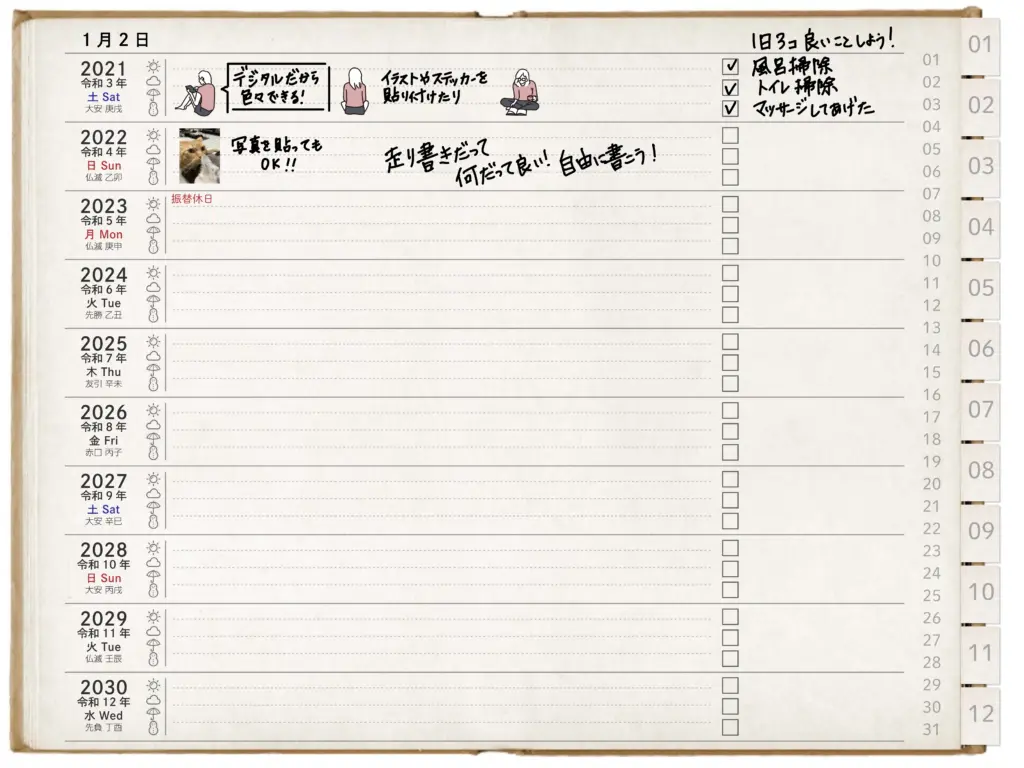 1月2日
1日3コ 良いことしよう!
2021
令和3年
土 Sat
大安 庚戌
デジタルだから
色々できる!
イラストやステッカーを
貼り付けたり
風呂掃除
トイレ掃除
マッサージしてあげた
2022
令和4年
日 Sun
仏滅 乙卯
写真を貼っても
OK!!
走り書きだって
何だって良い! 自由に書こう!
2023
令和5年
月 Mon
仏滅 庚申
振替休日
2024
令和6年
火 Tue
先勝 乙丑
2025
令和7年
木 Thu
友引 辛未
2026
令和8年
金 Fri
赤口 丙子
2027
令和9年
土 Sat
大安 辛巳
2028
令和10年
日 Sun
大安 丙戌
2029
令和11年
火 Tue
仏滅 壬辰
2030
令和12年
水 Wed
先負 丁酉
01
02
03
04
05
06
07
08
09
10
11
12
13
14
15
16
17
18
19
20
21
22
23
24
25
26
27
28
29
30
31
01
02
03
04
05
06
07
08
09
10
11
12